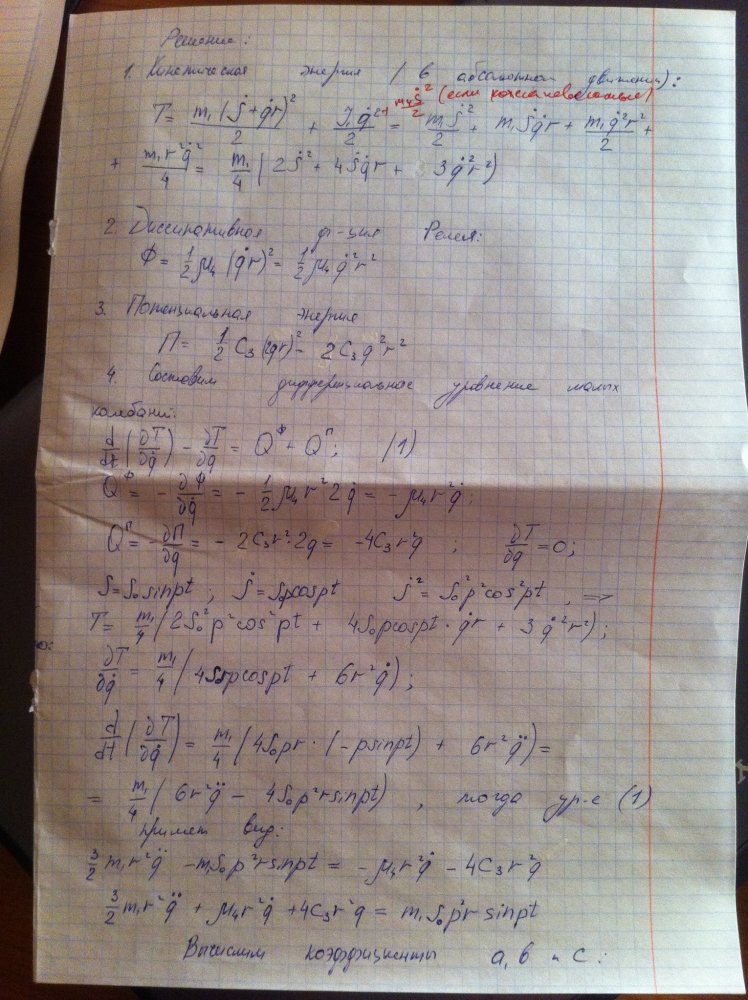 Решение:
1. Кинетическая энергия (в абсолютном движении):
+ m₄ṡ²/2 (если
T = m₁(ṡ+q̇r)²/2 + J₁q̇²/2 = m₁ṡ²/2 + m₁ṡq̇r + m₁q̇²r²/2 +
+ m₁r²q̇²/4 = m₁/4 (2ṡ² + 4ṡq̇r + 3q̇²r²)
2. Диссипативная ф-ция Релея:
Φ = 1/2 μ₄ (q̇r)² = 1/2 μ₄ q̇²r²
3. Потенциальная энергия
П = 1/2 C₃ (2qr)² = 2C₃q²r²
4. Составим дифференциальное уравнение малых
колебаний:
d/dt (∂T/∂q̇) - ∂T/∂q = Q^Φ + Q^П; (1)
Q^Φ = -∂Φ/∂q̇ = - 1/2 μ₄r² 2q̇ = -μ₄r²q̇;
Q^П = -∂П/∂q = - 2C₃r²·2q = -4C₃r²q ; ∂T/∂q = 0;
S = S₀ sinpt ; ṡ = S₀pcospt ṡ² = S₀²p²cos²pt , =>
T = m₁/4 (2S₀²p²cos²pt + 4S₀pcospt · q̇r + 3q̇²r²);
∂T/∂q̇ = m₁/4 (4S₀rpcospt + 6r²q̇);
d/dt (∂T/∂q̇) = m₁/4 (4S₀pr · (-psinpt) + 6r²q̈) =
= m₁/4 (6r²q̈ - 4S₀p²rsinpt) , тогда ур-е (1)
примет вид:
3/2 m₁r²q̈ - m₁S₀p²rsinpt = -μ₄r²q̇ - 4C₃r²q
3/2 m₁r²q̈ + μ₄r²q̇ + 4C₃r²q = m₁S₀p²r sinpt
Вычислим коэффициенты a, b и c: